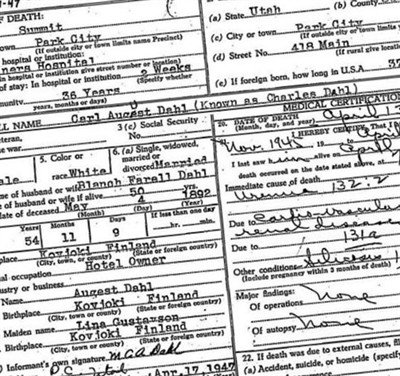 OF DEATH:
Summit
Park City
(If outside city or town limits name Precinct)
Miners Hospital
in hospital or institution give street number or location)
of stay: In hospital or institution 2 Weeks
(Specify whether
36 Years
years, months or days)
(a) State Utah (b) County
(c) City or town Park City
(If outside city or town limits
(d) Street No. 478 Main
(If rural give location)
(e) If foreign born, how long in U.S.A. 37
ULL NAME Carl August Dahl (Known as Charles Dahl)
3 (c) Social Security
No.
5. Color or
race.
White
6. (a) Single, widowed,
married or
divorced Married
of husband or wife Blanch Farall Dahl
of husband or wife if alive 50 yrs.
date of deceased May 4 1892
(Month) (Day) (Year)
Years Months Days If less than one day
54 11 9 hr. min.
Kovjoki Finland
(City, town or county) (State or foreign country)
occupation Hotel Owner
Industry or business
Name August Dahl
Birthplace Kovjoki Finland
(City, town or county) (State or foreign country)
Maiden name Lina Gustafson
Birthplace Kovjoki Finland
(City, town or county) (State or foreign country)
Informant's own signature M.C.A. Dahl
Apr. 17, 1947
MEDICAL CERTIFICATION
20. DATE OF DEATH April 13
(Month, day, and year)
21. I HEREBY CERTIFY, That I
Nov. 1945 April
I last saw him alive on
death occurred on the date stated above, at
Immediate cause of death
Uremia 132.2
Due to Cardio Vascular
renal disease
Due to 131a
Other conditions Silicosis
(Include pregnancy within 3 months of death)
Major findings:
Of operations None
Of autopsy None
22. If death was due to external causes, fill
(a) Accident, suicide, or homicide (specify)